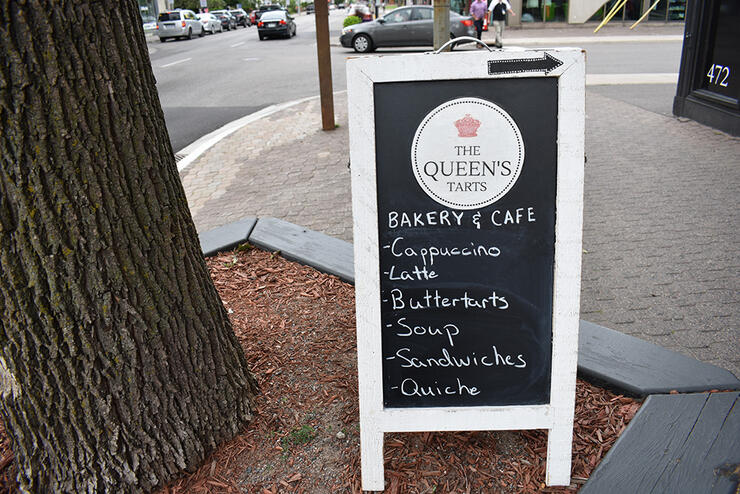 THE
QUEEN'S
TARTS
BAKERY & CAFE
-Cappuccino
-Latte
-Buttertarts
-Soup
-Sandwiches
-Quiche
472